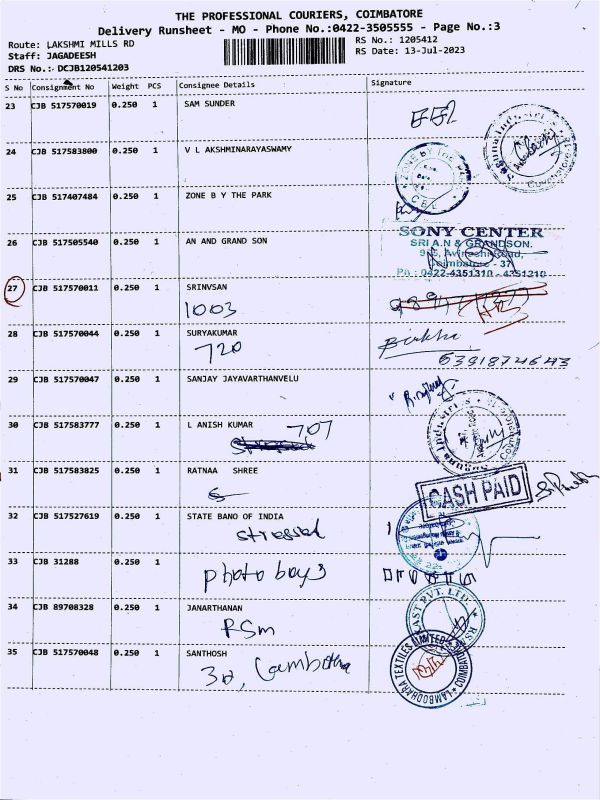 THE PROFESSIONAL COURIERS, COIMBATORE
Delivery Runsheet - MO - Phone No.:0422-3505555 - Page No.:3
Route: LAKSHMI MILLS RD RS No.: 1205412
Staff: JAGADEESH RS Date: 13-Jul-2023
DRS No.: DCJB120541203
S No Consignment No Weight PCS Consignee Details Signature
23 CJB 517570019 0.250 1 SAM SUNDER
24 CJB 517583800 0.250 1 V L AKSHMINARAYASWAMY
ZONE BY THE
CBE
25 CJB 517407484 0.250 1 ZONE B Y THE PARK
26 CJB 517505540 0.250 1 AN AND GRAND SON
SONY CENTER
SRI A.N & GRANDSON.
Avinashi Road,
Coimbatore - 37
Ph : 0422-4351310 - 4351210
27 CJB 517570011 0.250 1 SRINVSAN
1003
28 CJB 517570044 0.250 1 SURYAKUMAR
720
6391874643
29 CJB 517570047 0.250 1 SANJAY JAYAVARTHANVELU
30 CJB 517583777 0.250 1 L ANISH KUMAR 707
31 CJB 517583825 0.250 1 RATNAA SHREE
CASH PAID
32 CJB 517527619 0.250 1 STATE BANO OF INDIA
stressed
33 CJB 31288 0.250 1
photo boys
34 CJB 89708328 0.250 1 JANARTHANAN
PSm
CAST PVT. LTD
35 CJB 517570048 0.250 1 SANTHOSH
3rd,
LAMBODHARA TEXTILES LIMITED
COIMBATORE